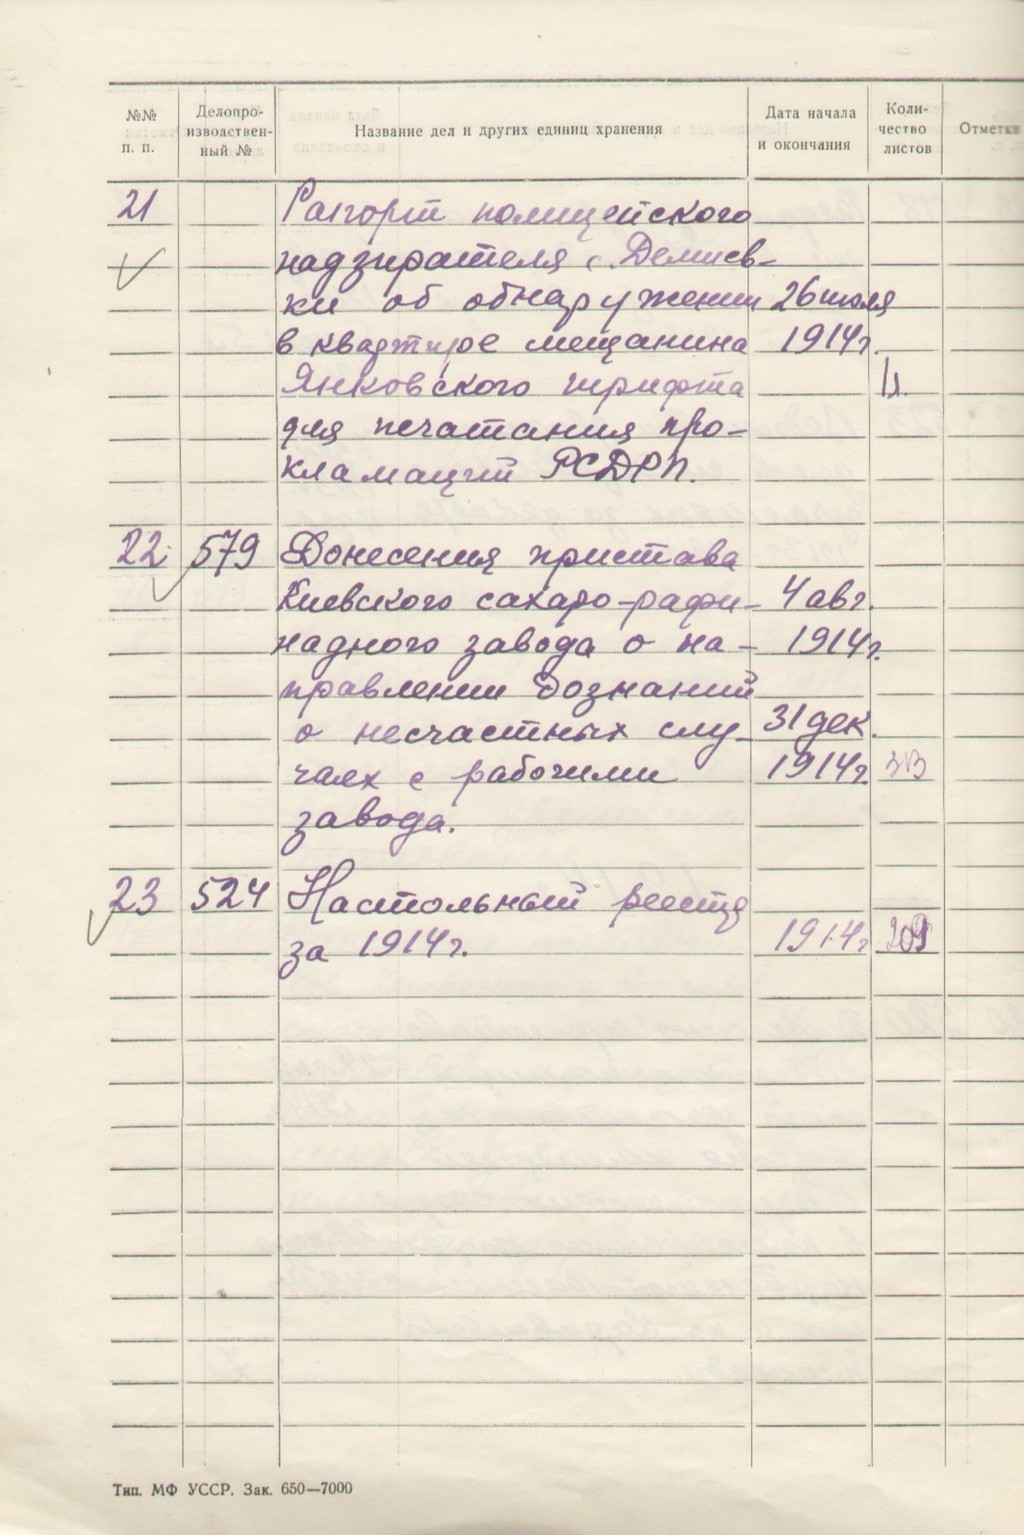 №№ п. п. Делопроизводственный № Название дел и других единиц хранения Дата начала и окончания Количество листов Отметки
21 Рапорт полицейского
надзирателя с. Демиев-
ки об обнаружении 26 июля
в квартире мещанина 1914 г.
Янковского шрифта 1 л.
для печатания про-
кламаций РСДРП.
22 579 Донесения пристава
Киевского сахаро-рафи- 4 авг.
надного завода о на- 1914 г.
правлении дознаний
о несчастных слу- 31 дек.
чаях с рабочими 1914 г.
завода.
23 524 Настольный реестр
за 1914 г. 1914 г. 209
Тип. МФ УССР. Зак. 650—7000